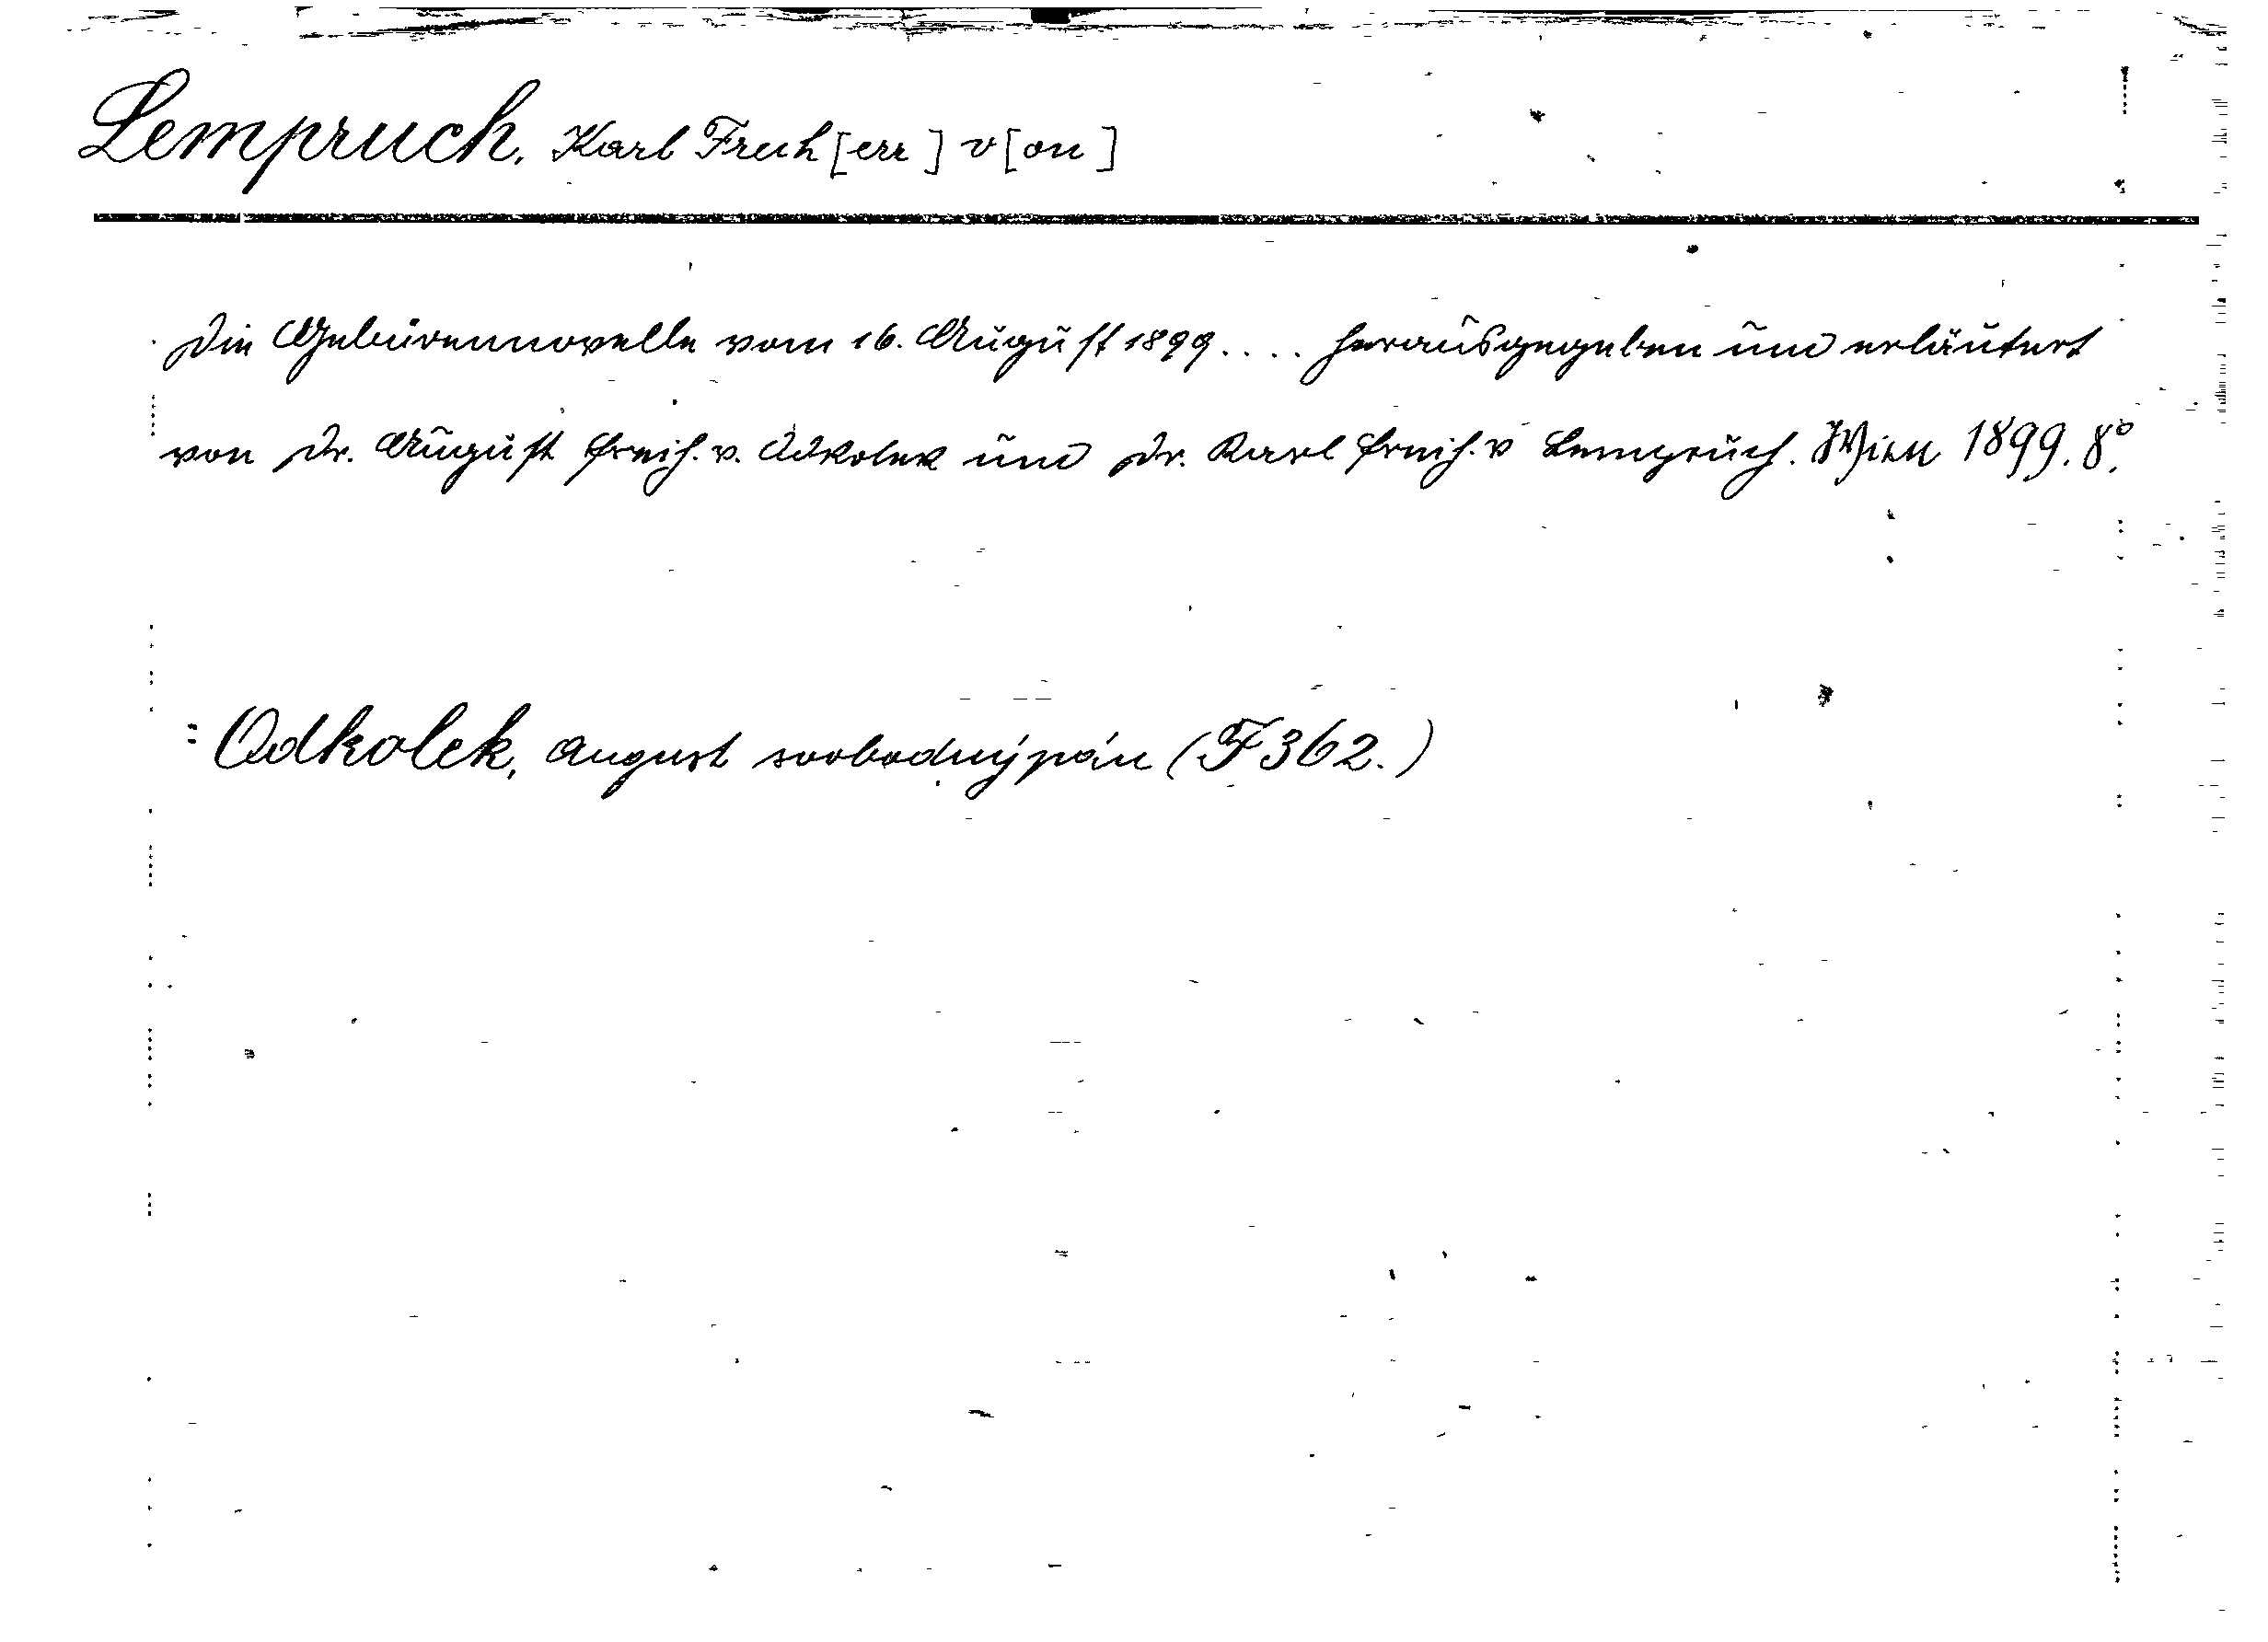 Lempruch, Karl Freih[err] v[on]
Die Gebürennovelle vom 16. August 1899.... herausgegeben und erläutert
von Dr. August Freih. v. Odkolek und Dr. Karl Freih. v Lempruch. Wien 1899. 8°.
: Odkolek, August svobodný pán (F 362.)